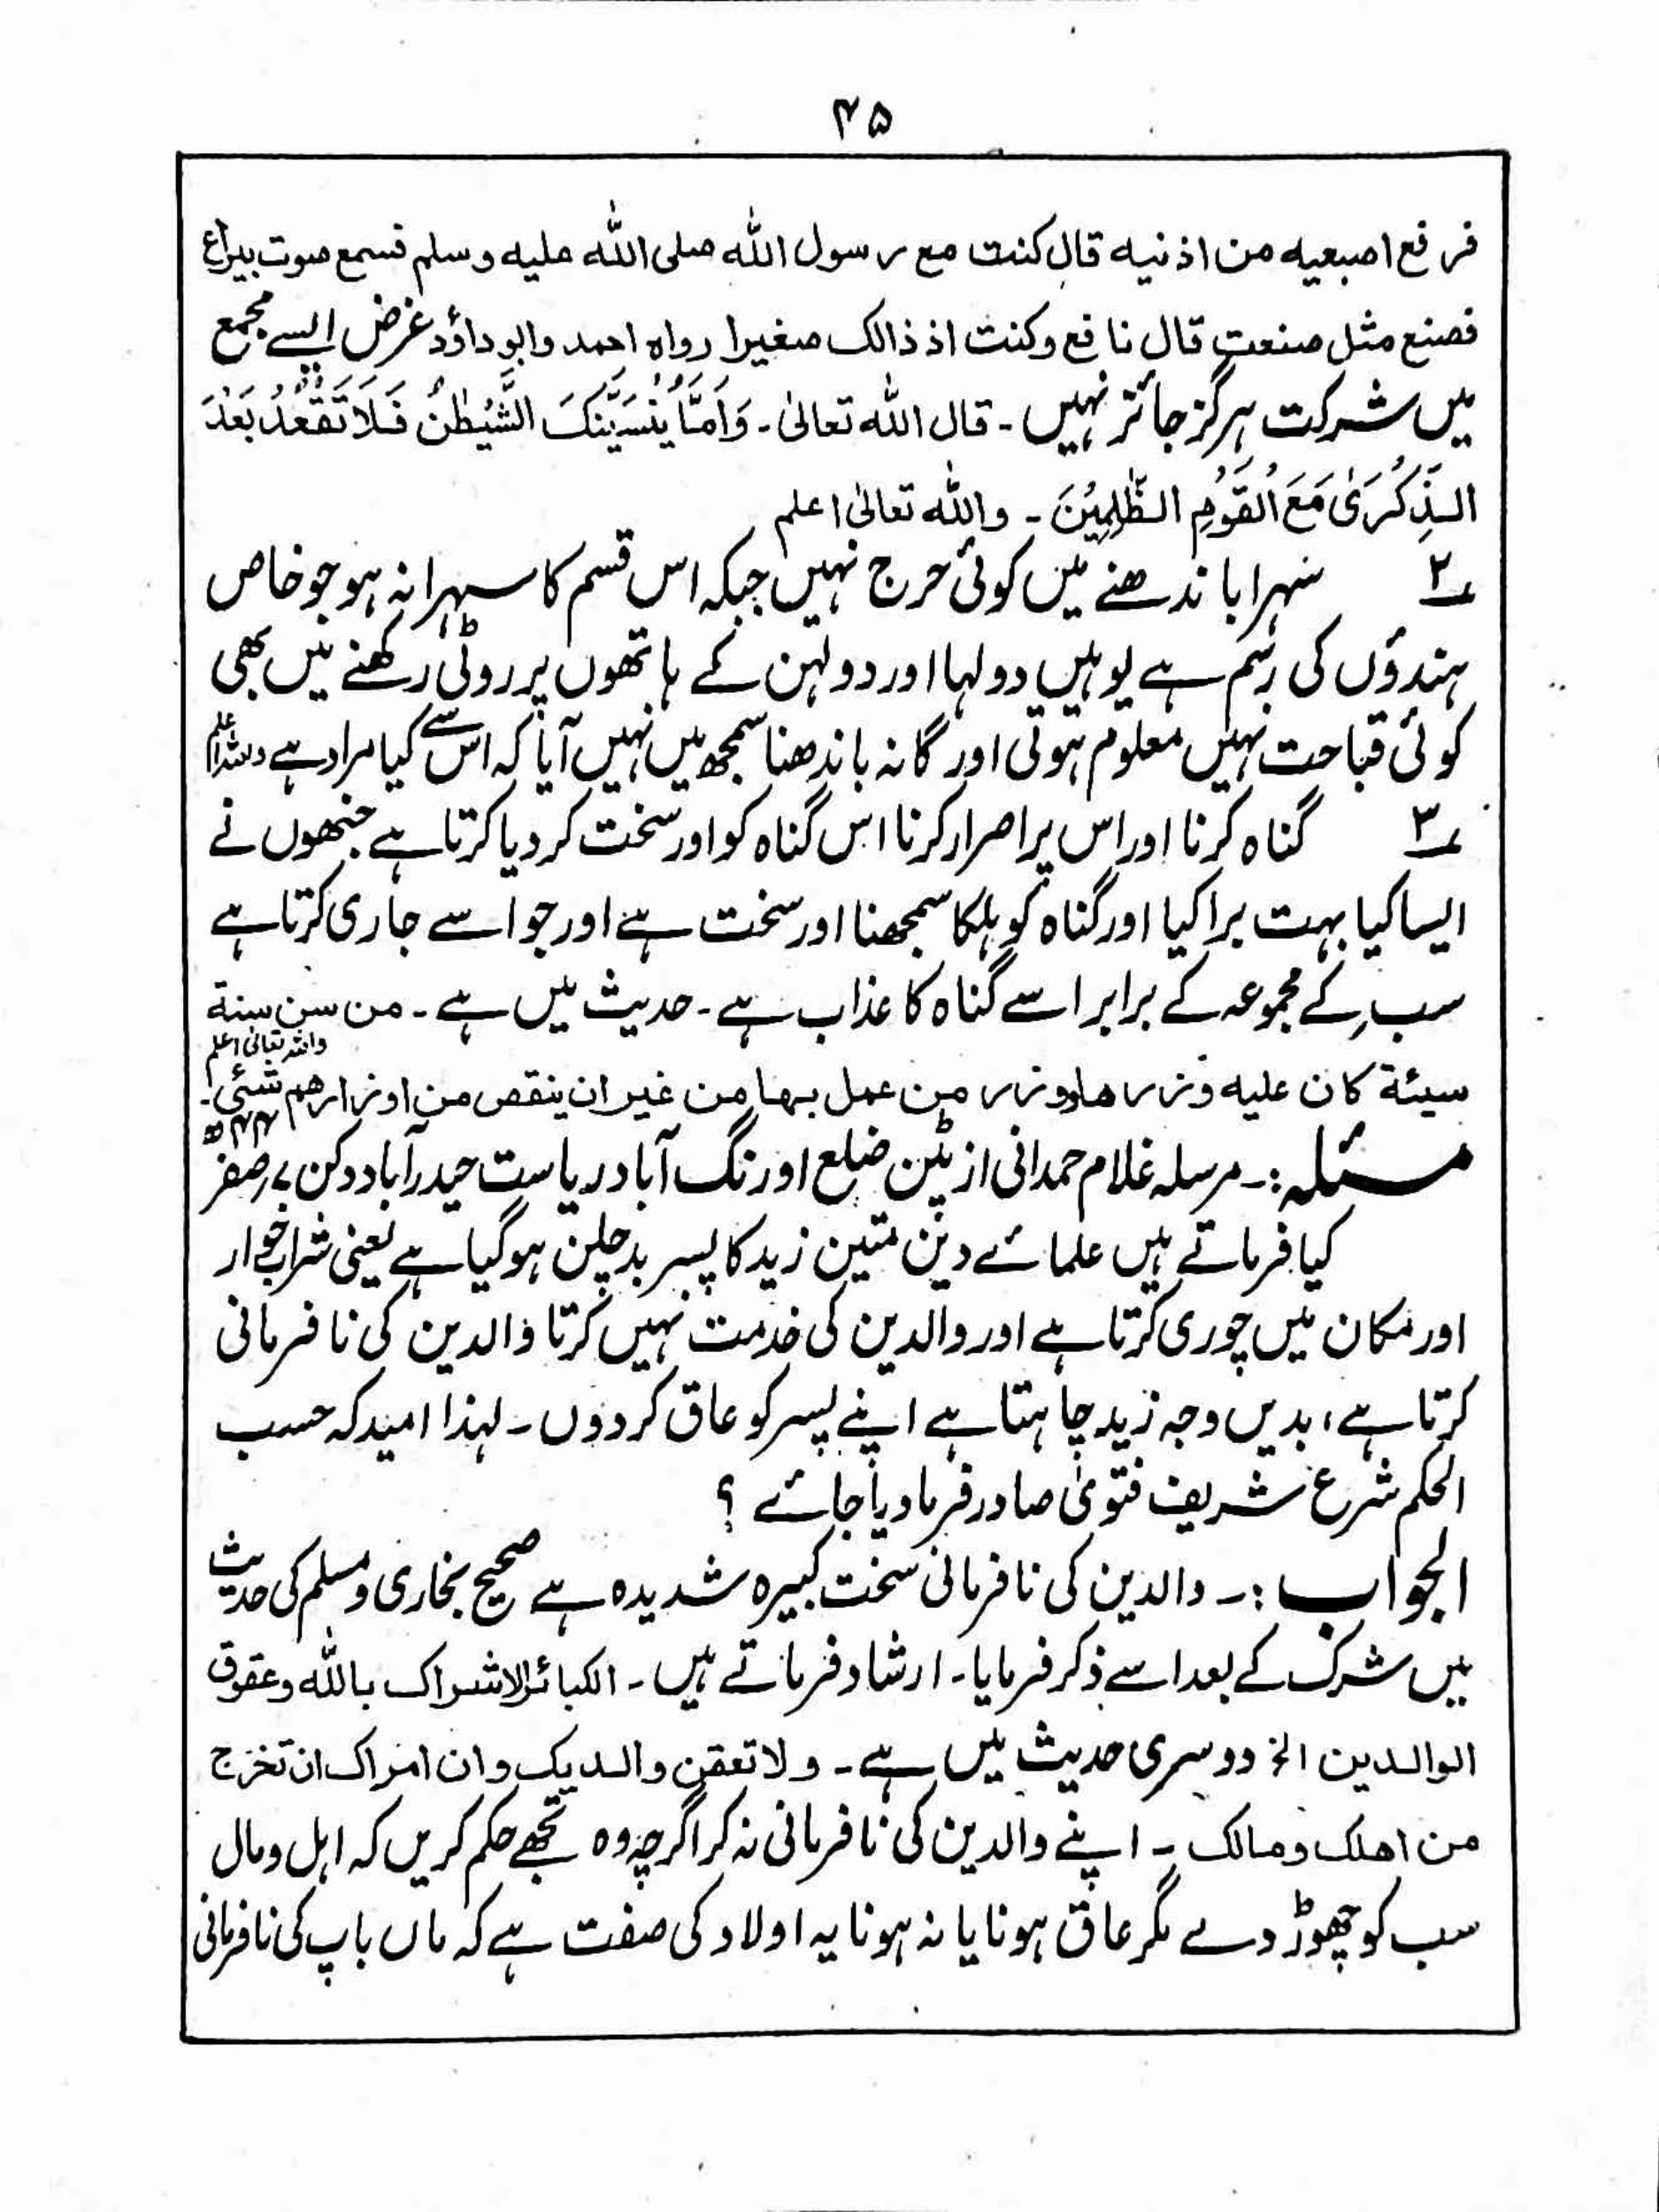 ۴۵
فرفع اصبعیه من اذنیه قال کنت مع رسول الله صلی الله علیه وسلم فسمع صوت یراع
فصنع مثل صنعت قال نافع وکنت اذ ذالک صغیرا رواه احمد وابو داؤد غرض ایسے مجمع
میں شرکت ہرگز جائز نہیں ۔ قال الله تعالیٰ ۔ وَاَمَّا یُنْسِیَنَّکَ الشَّیْطٰنُ فَلَا تَقْعُدْ بَعْدَ
الذِّکْرَیٰ مَعَ الْقَوْمِ الظّٰلِمِیْنَ ۔ والله تعالیٰ اعلم
۲؎ سہرا باندھنے میں کوئی حرج نہیں جبکہ اس قسم کا سہرا نہ ہو جو خاص
ہندؤں کی رسم ہے یوہیں دولہا اور دولہن کے ہاتھوں پر روٹی رکھنے میں بھی
کوئی قباحت نہیں معلوم ہوتی اور گانہ باندھنا سمجھ میں نہیں آیا کہ اس سے کیا مراد ہے واللہ اعلم
۳؎ گناہ کرنا اور اس پر اصرار کرنا اس گناہ کو اور سخت کر دیا کرتا ہے جنھوں نے
ایسا کیا بہت برا کیا اور گناہ کو ہلکا سمجھنا اور سخت ہے اور جو اسے جاری کرتا ہے
سب کے مجموعہ کے برابر اسے گناہ کا عذاب ہے ۔ حدیث میں ہے ۔ من سن سنة
سیئة کان علیه وزرها ووزر من عمل بها من غیر ان ینقص من اوزارهم شئی ۔ واللہ تعالیٰ اعلم
مسئلہ :۔ مرسلہ غلام حمدانی از پٹن ضلع اورنگ آباد ریاست حیدرآباد دکن ۷ صفر ۴۴ھ
کیا فرماتے ہیں علمائے دین متین زید کا پسر بدچلن ہو گیا ہے یعنی شراب خوار
اور مکان میں چوری کرتا ہے اور والدین کی خدمت نہیں کرتا والدین کی نافرمانی
کرتا ہے، بدیں وجہ زید چاہتا ہے اپنے پسر کو عاق کر دوں ۔ لہٰذا امید کہ حسب
الحکم شرع شریف فتویٰ صادر فرما دیا جائے ؟
الجواب :۔ والدین کی نافرمانی سخت کبیرہ شدیدہ ہے صحیح بخاری و مسلم کی حدیث
میں شرک کے بعد اسے ذکر فرمایا ۔ ارشاد فرماتے ہیں ۔ الکبائر الاشراک بالله وعقوق
الوالدین الخ دوسری حدیث میں ہے ۔ ولا تعقن والدیک وان امراک ان تخرج
من اهلک ومالک ۔ اپنے والدین کی نافرمانی نہ کر اگرچہ وہ تجھے حکم کریں کہ اہل و مال
سب کو چھوڑ دے مگر عاق ہونا یا نہ ہونا یہ اولاد کی صفت ہے کہ ماں باپ کی نافرمانی